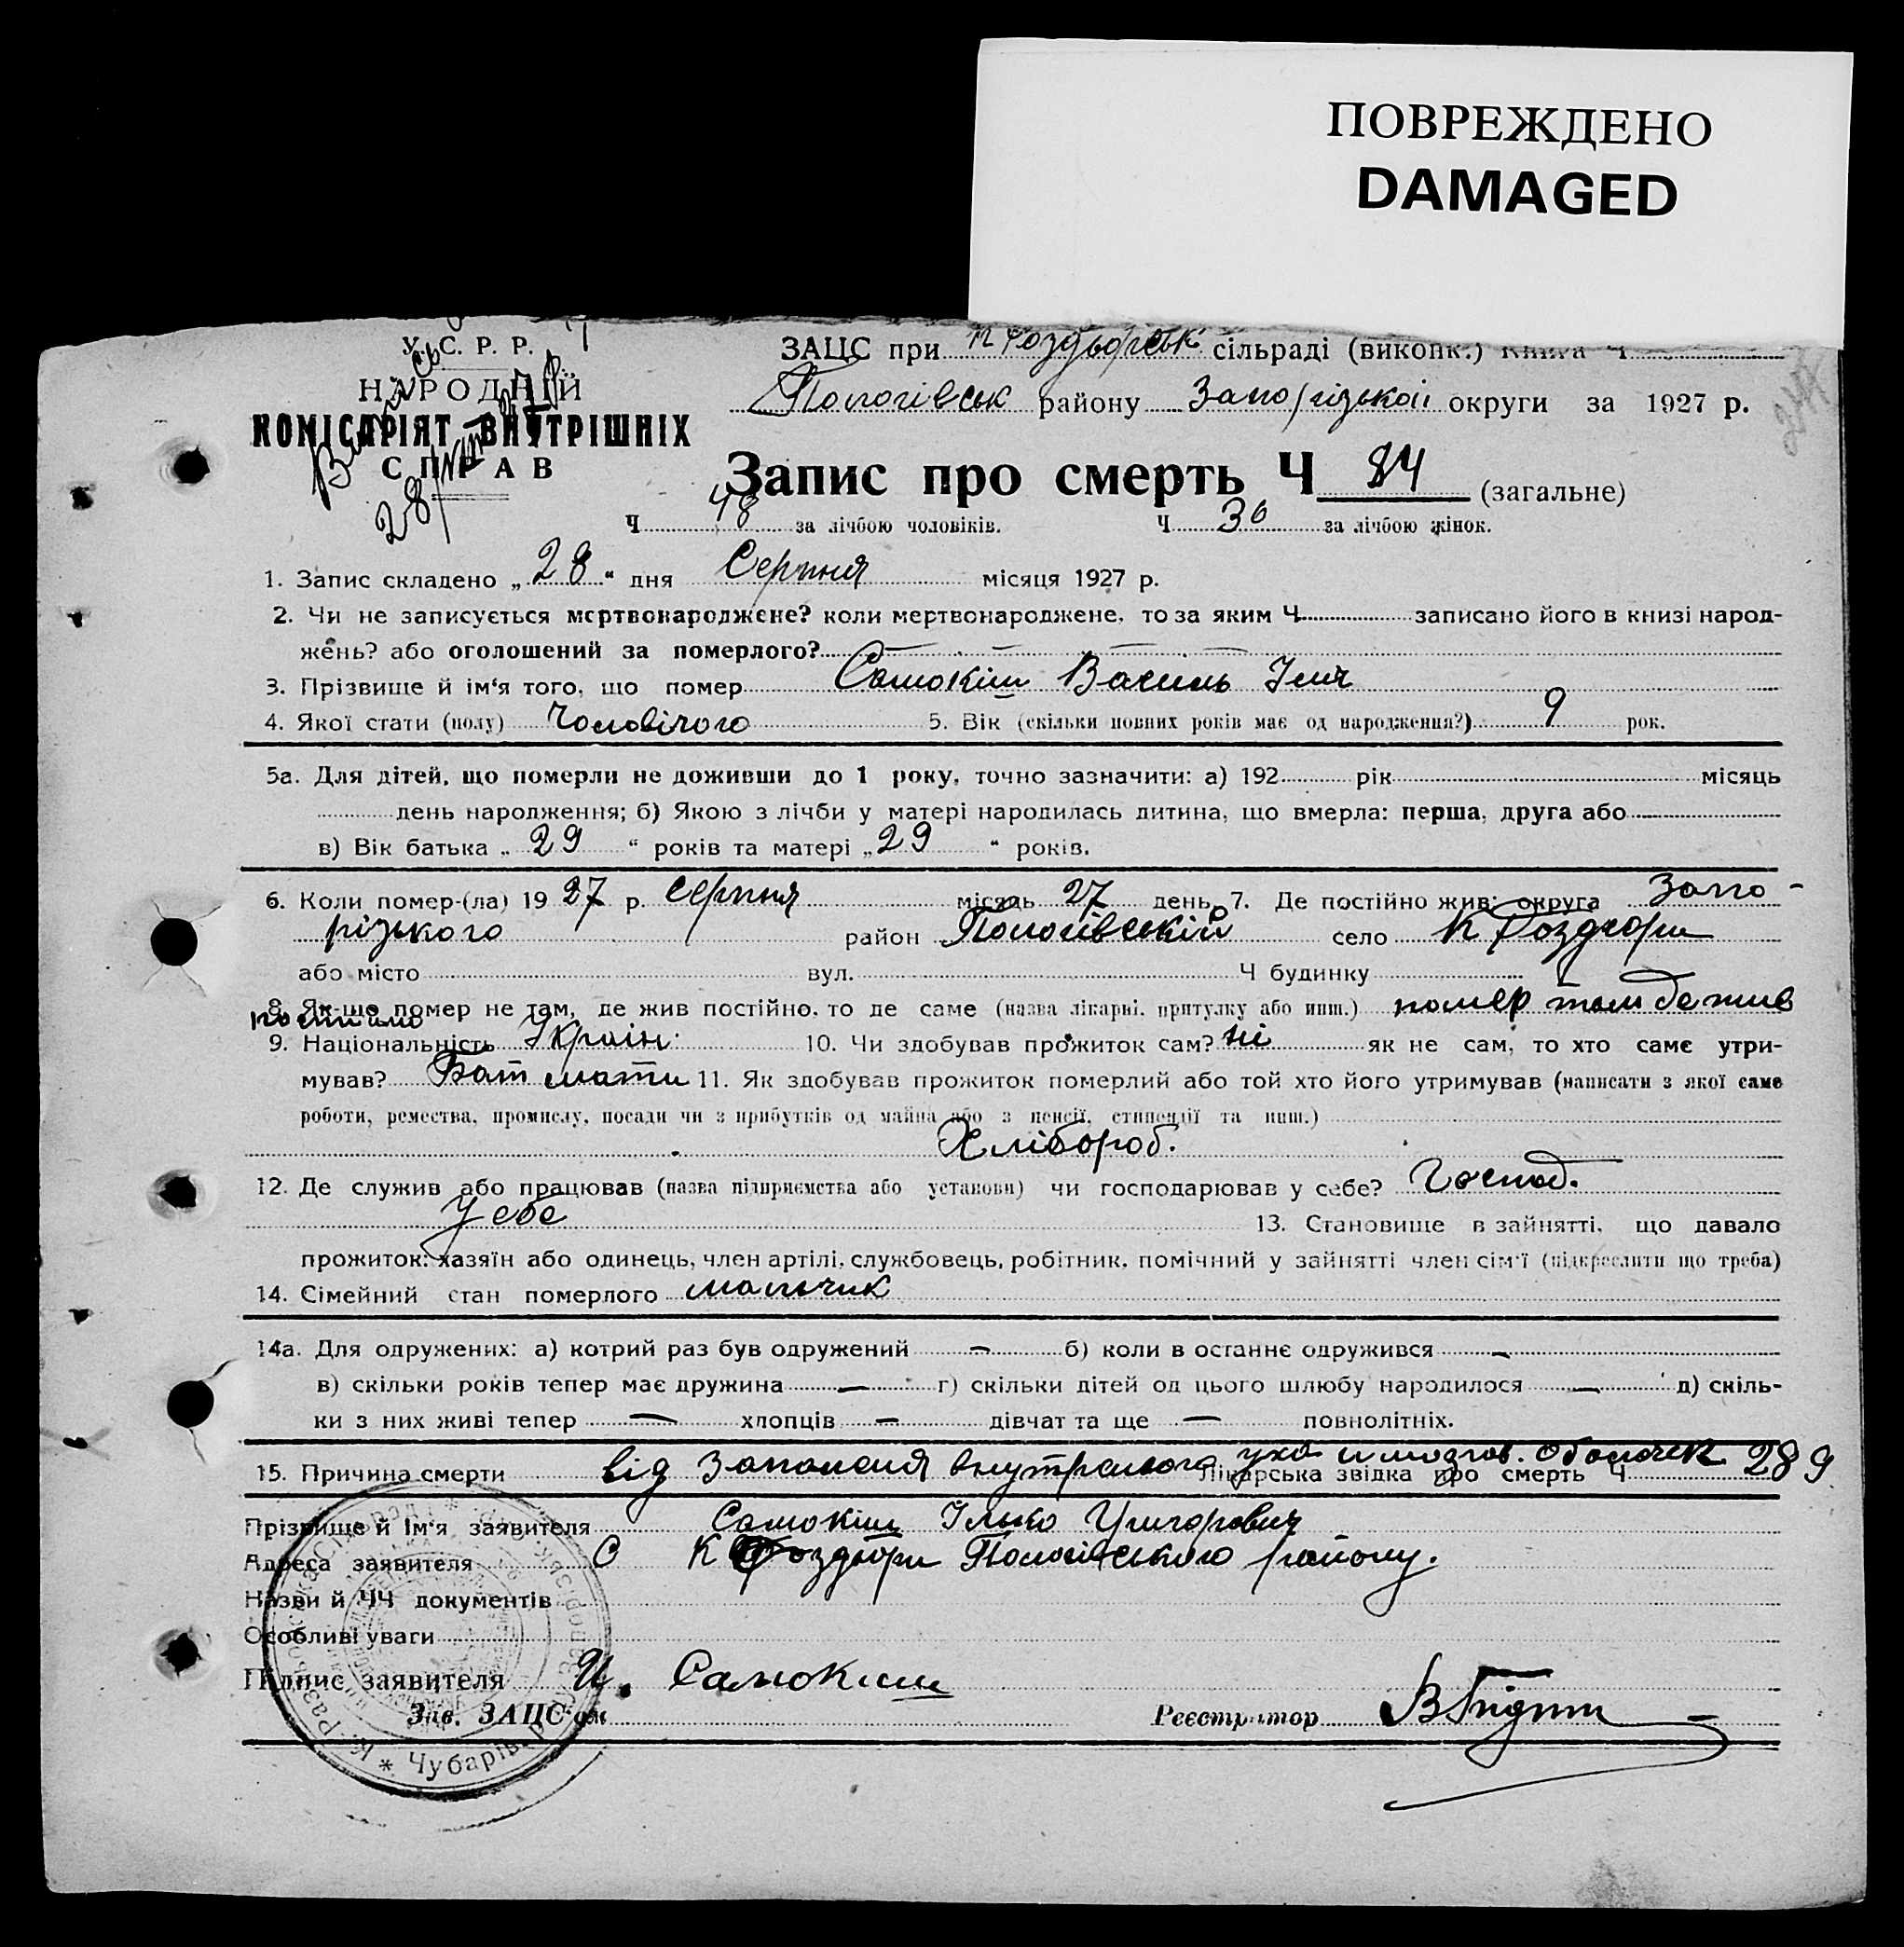 ПОВРЕЖДЕНО
DAMAGED
У. С. Р. Р.
НАРОДНІЙ
КОМІСАРІЯТ ВНУТРІШНІХ
СПРАВ
28/VIII
ЗАЦС при К Роздьорськ. сільраді (викопк.) Книга Ч
Пологівськ району Запорізької округи за 1927 р.
244
Запис про смерть Ч 84 (загальне)
Ч 48 за лічбою чоловіків. Ч 36 за лічбою жінок.
1. Запис складено „28“ дня Серпня місяця 1927 р.
2. Чи не записується мертвонароджене? коли мертвонароджене, то за яким Ч записано його в книзі народ-
жень? або оголошений за померлого?
3. Прізвище й ім‘я того, що помер Самокіш Василь Ілич
4. Якої стати (полу) Чоловічого 5. Вік (скільки повних років має од народження?) 9 рок.
5а. Для дітей, що померли не доживши до 1 року, точно зазначити: а) 192 рік місяць
день народження; б) Якою з лічби у матері народилась дитина, що вмерла: перша, друга або
в) Вік батька „ 29 “ років та матері „ 29 “ років.
6. Коли помер-(ла) 19 27 р. Серпня місяць 27 день 7. Де постійно жив: округа Запо-
різького район Пологівський село К Роздори
або місто вул. Ч будинку
8. Як-що помер не там, де жив постійно, то де саме (назва лікарні, притулку або инш.) помер там де жив
постійно
9. Національність Україн. 10. Чи здобував прожиток сам? ні як не сам, то хто саме утри-
мував? Бат мати 11. Як здобував прожиток померлий або той хто його утримував (написати з якої саме
роботи, ремества, промислу, посади чи з прибутків од майна або з пенсії, стипендії та инш.)
Хлібороб.
12. Де служив або працював (назва підприємства або установи) чи господарював у себе? Господ.
У себе 13. Становище в зайнятті, що давало
прожиток: хазяїн або одинець, член артілі, службовець, робітник, помічний у зайнятті член сім‘ї (підкреслити що треба)
14. Сімейний стан померлого мальчик
14а. Для одружених: а) котрий раз був одружений — б) коли в останнє одружився —
в) скільки років тепер має дружина — г) скільки дітей од цього шлюбу народилося — д) скіль-
ки з них живі тепер — хлопців — дівчат та ще — повнолітніх.
15. Причина смерти від запаленя внутренього уха и мозгов. оболочек Лікарська звідка про смерть Ч 289
Прізвище й Ім‘я заявителя Самокіш Ілько Григорович
Адреса заявителя С К Роздьори Пологівського району.
Назви й ЧЧ документів
Особливі уваги
Підпис заявителя И. Самокиш
Зав. ЗАЦС‘ом Реєстратор
* Чубарівс